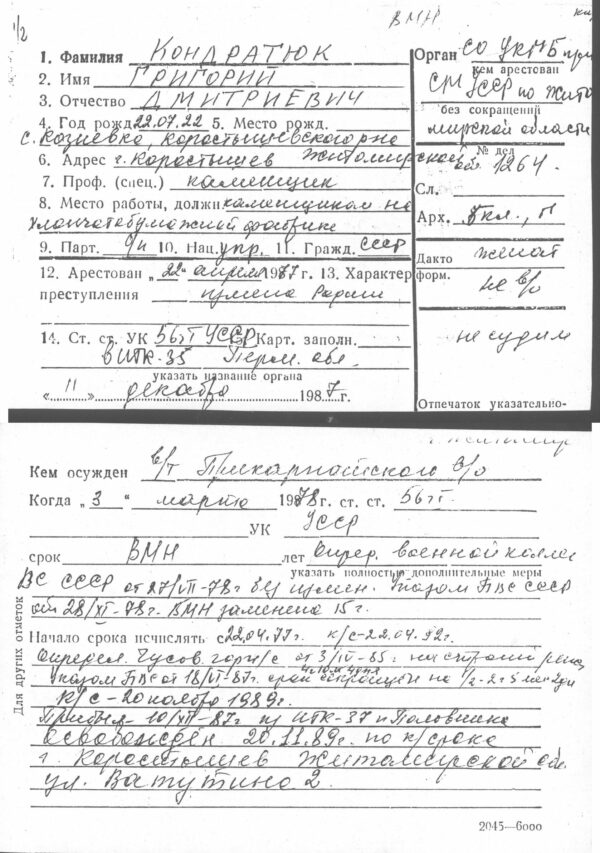 1/2
ВМН
1. Фамилия КОНДРАТЮК
2. Имя ГРИГОРИЙ
3. Отчество ДМИТРИЕВИЧ
4. Год рожд. 22.07.22 5. Место рожд.
с. Козиевка, Коростышевского р-на
6. Адрес г. Коростышев Житомирской
7. Проф. (спец.) каменщик
8. Место работы, должн. каменщиком на
хлопчатобумажной фабрике
9. Парт. 10. Нац. укр. 11. Гражд. СССР
12. Арестован „22“ апреля 1977 г. 13. Характер
преступления измена Родине
14. Ст. ст. УК 56 УССР Карт. заполн.
в ИТК-35 Перм. обл.
указать название органа
«11» декабря 1987 г.
Орган СО УКГБ при
кем арестован
СМ УССР по Жито
без сокращений
мирской области
№ дел
1264.
Сл.
Арх.
Дакто
женат
форм.
не в/о
не судим
Отпечаток указательно-
Кем осужден в/т Прикарпатского в/о
Когда „3“ марта 1978 г. ст. ст. 56
УК УССР
срок ВМН лет Опред. военной колле
указать полностью дополнительные меры
ВС СССР от 27/VII-78г без измен. Указом ПВС СССР
от 28/XI-78г. ВМН заменена 15 г.
Для других отметок
Начало срока исчислять с 22.04.77г. к/с-22.04.92г.
Определ. Чусов. горн/с от 3/IV-85г.
Указом ПВС от 18/VI-87г. срок сокращен на 1/2-2г 5 мес 2 дн
к/с-20 ноября 1989г.
Прибыл-10/XII-87г из ИТК-37 п Половинка
Освобожден 20.11.89г. по к/срока
г. Коростышев Житомирской обл.
ул. Ватутина 2.
2045—6000